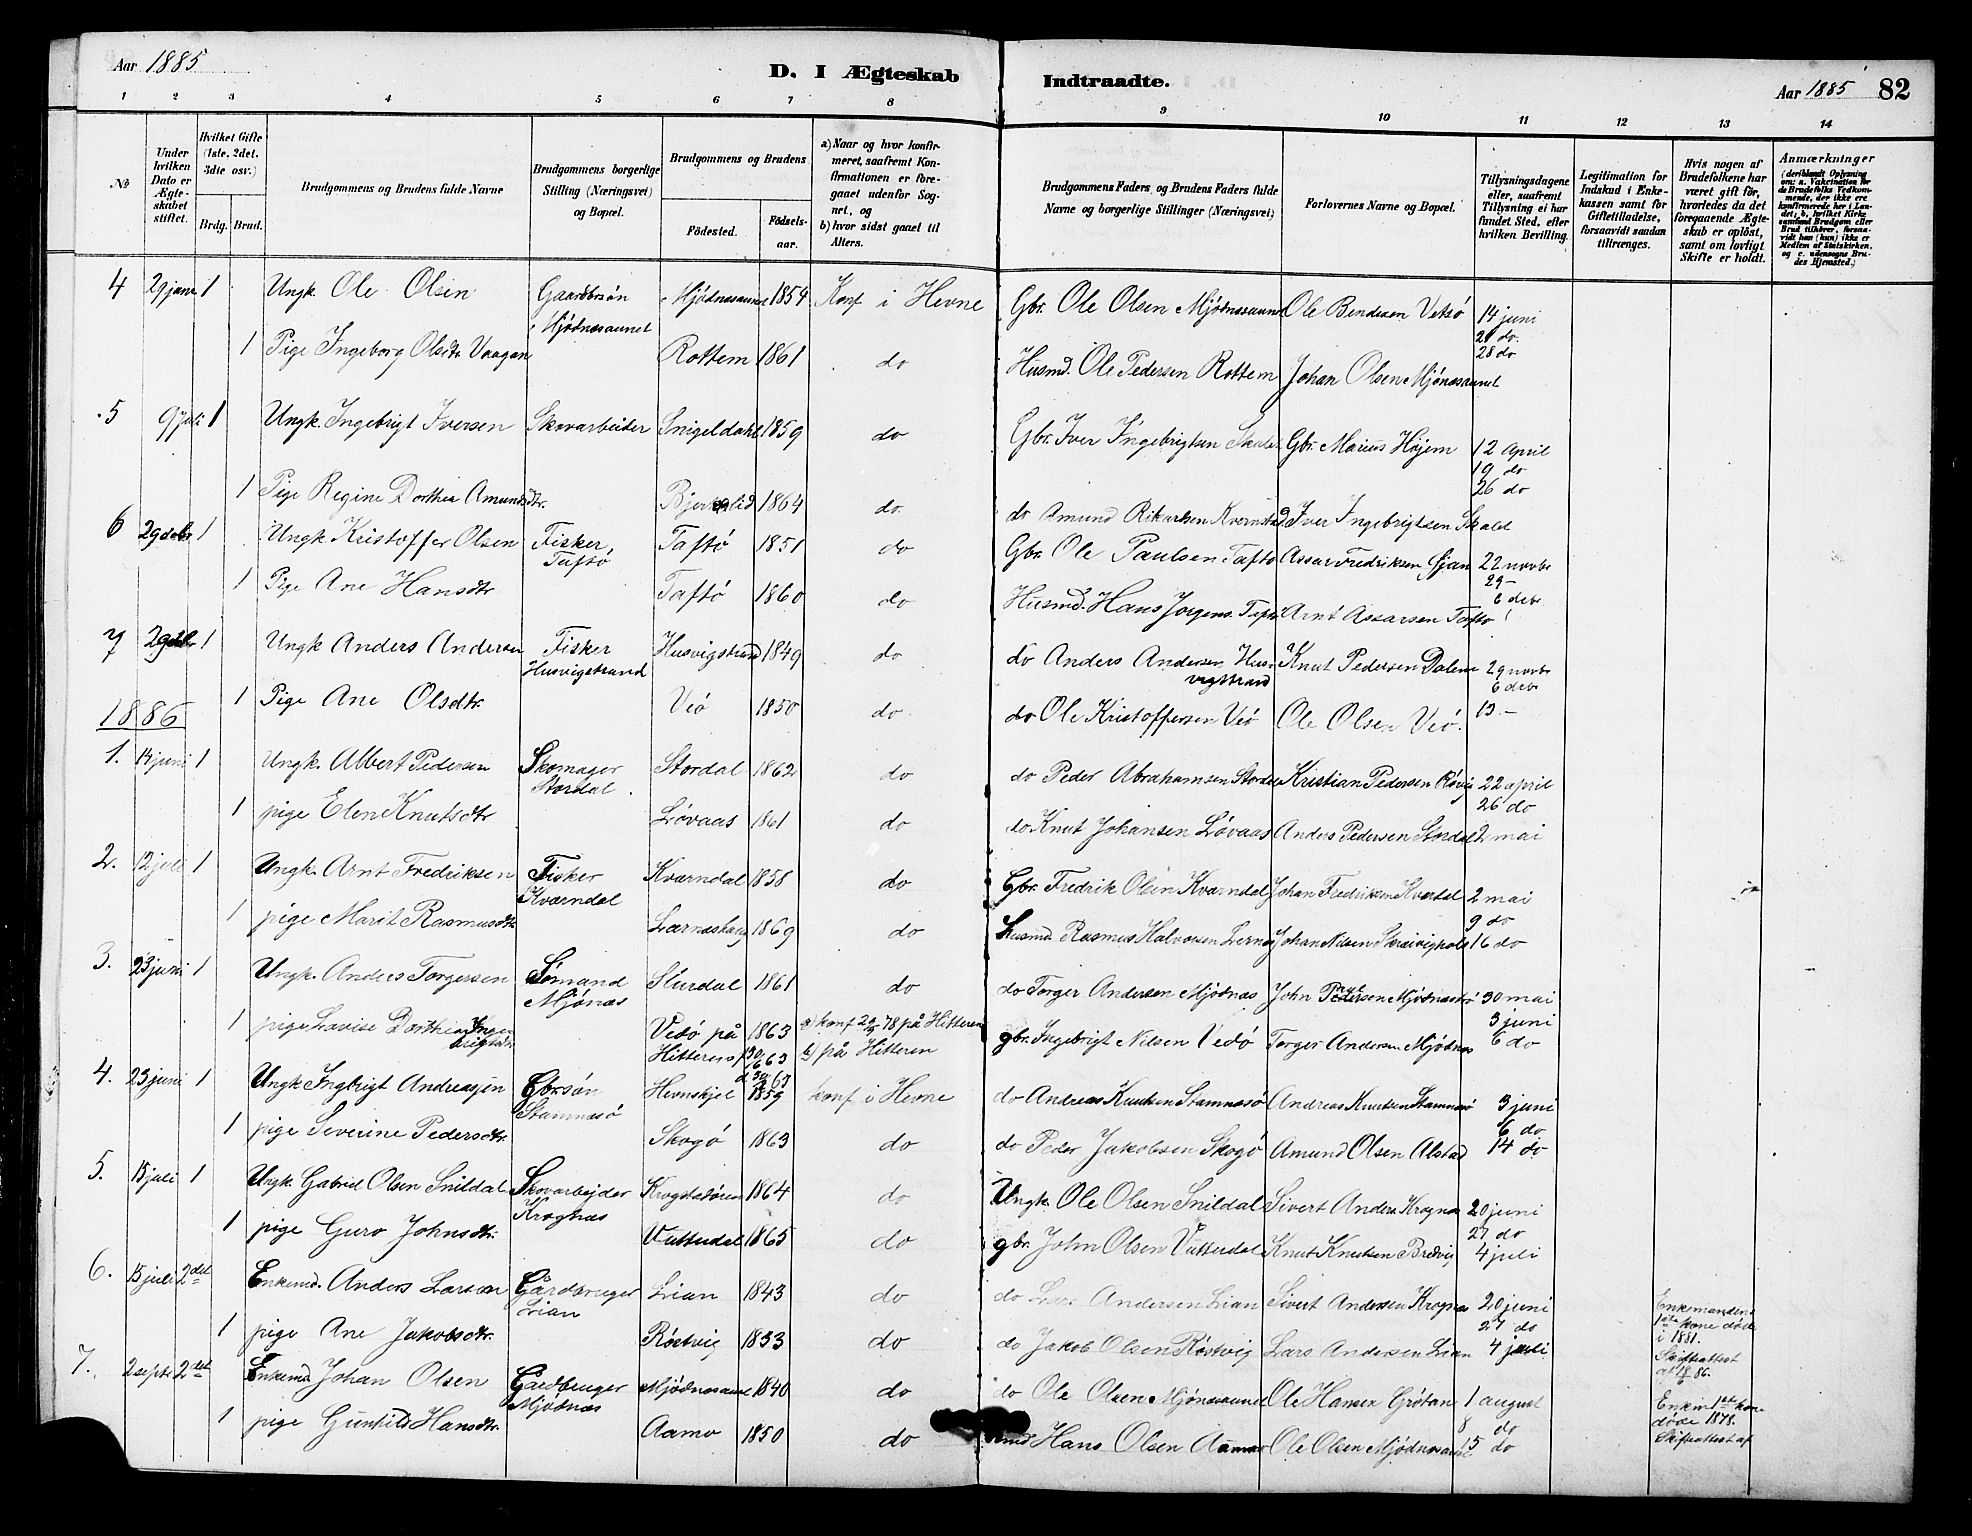 Aar 1885
D. I Ægteskab Indtraadte.
Aar 1885 82
1 2 3 4 5 6 7 8 9 10 11 12 13 14
№
Under hvilken Dato er Ægteskabet stiftet.
Hvilket Gifte (1ste, 2det, 3die osv.)
Brdg. Brud.
Brudgommens og Brudens fulde Navne
Brudgommens borgerlige Stilling (Næringsvei) og Bopæl.
Brudgommens og Brudens
Fødested. Fødselsaar.
a) Naar og hvor konfirmeret, saafremt Konfirmationen er foregaaet udenfor Sognet, og
b) hvor sidst gaaet til Alters.
Brudgommens Faders og Brudens Faders fulde Navne og borgerlige Stillinger (Næringsvei)
Forlovernes Navne og Bopæl.
Tillysningsdagene eller, saafremt Tillysning ei har fundet Sted, efter hvilken Bevilling.
Legitimation for Indskud i Enkekassen samt for Giftetilladelse, forsaavidt saadan tiltrænges.
Hvis nogen af Brudefolkene har været gift før, hvorledes da det foregaaende Ægteskab er opløst, samt om lovligt Skifte er holdt.
Anmærkninger (deriblandt Oplysning om: a. Vakcination for de Brudefolks Vedkommende, der ikke ere konfirmerede her i Landet; b. hvilket Kirkesamfund Brudgom eller Brud tilhører, forsaavidt han (hun) ikke er Medlem af Statskirken, og c. udensogns Brudes Hjemsted.)
4 29 juni 1 Ungk. Ole Olsen Gaardbrsøn Mjødnessaunet 1854 Konf i Hevne Gbr. Ole Olsen Mjødnessaunet Ole Bendixen Vetsø 14 juni
i Mjødnessaunet 21 do.
28 do
1 Pige Ingeborg Olsdtr Vaagan Rottem 1861 do Husmd. Ole Pedersen Rottem Johan Olsen Mjønessaunet
5 9 juli 1 Ungk. Ingebrigt Iversen Skovarbeider Snigeldahl 1859 do Gbr. Iver Ingebrigtsen Gbr. Marius Højem 12 april
19 do
26 do
1 Pige Regine Dorthea Amundsdtr. 1864 do do Amund Rikartsen Kvernstad Iver Ingebrigtsen Skald
6 29 debr 1 Ungk Kristoffer Olsen Fisker Taftø 1851 do Gbr. Ole Paulsen Taftø Assar Fredriksen Gjan 22 novbr
Taftø 29 –
6 debr
1 Pige Ane Hansdtr Taftø 1860 do Husmd. Hans Jørgens. Taftø Arnt Assarsen Taftø
7 29 debr 1 Ungk Anders Andersen Fisker Husvigstrand 1849 do do Anders Andersen Husvigstrand Knut Pedersen Dalem 29 novbr
Husvigstrand 6 debr
1 Pige Ane Olsdtr. Veø 1850 do do Ole Kristoffersen Veø Ole Olsen Veø. 13 –
1886
1. 14 juni 1 Ungk. Albert Pedersen Skomager Stordal 1862 do do Peder Abrahamsen Stordal Kristian Pedersen Røvig 22 april
Stordal. 26 do
1 pige Elen Knutsdtr Løvaas 1861 do do Knut Johansen Løvaas Anders Pedersen Stordal 2 mai
2. 12 juli 1 Ungk. Arnt Fredriksen Fisker Kværndal 1858 do Gbr. Fredrik Olsen Kværndal Johan Fredriksen 2 mai
Kværndal 9 do
1 pige Marit Rasmusdtr Lærneshaug 1869 do Husmd Rasmus Halvorsen Johan Nilsen 16 do
3. 23 juni 1 Ungk. Anders Torgersen Sømand Slurdal 1861 do do Torger Andersen Mjødnæs John Mjødnæssø 30 mai
Mjønæs 3 juni
1 pige Lovise Dorthea Ingebrigtsdtr. Vedø på 1863 a) konf 78 på Hitteren gbr. Ingebrigt Nilsen Vedø Torger Andersen Mjødnæs 6 do
Hitteren b) på Hitteren
4. 23 juni 1 Ungk Ingbrigt Andreasen Gbrsøn Hevnskjel 1859 konf i Hevne do Andreas Knutsen Stamnæsø Andreas Knutsen Stamnæsø 3 juni
Stamnæsø 6 do
1 pige Severine Pedersdtr. Skogø 1863 do do Peder Jakobsen Skogø Amund Olsen Alstad 14 do
5. 15 juli 1 Ungk Gabriel Olsen Snildal Skovarbejder Krogstadøren 1864 do Ungk Ole Olsen Snildal Sivert Anders Krognæs 20 juni
Krognæs 27 do
1 pige Guro Johnsdtr. Vuttudal 1865 do gbr. John Olsen Vuttudal Knut Knutsen Bredvig 4 juli
6. 15 juli 2det Enkemd. Anders Larsen Gårdbruger Lian 1843 do do Lars Andersen Lian Sivert Andersen Krognæs 20 juni Enkemandens 1ste kone døde i 1881. Skifteattest af 86.
Lian 27 do
1 pige Ane Jakobsdtr. Røstvig 1833 do do Jakob Olsen Røstvig Lars Andersen Lian 4 juli
7. 2 septr 2det Enkemd Johan Olsen Gårdbruger Mjødnessaunet 1840 do do Ole Olsen Mjønessaunet Ole Hansen Grøtan 1 august Enkm 1ste kone døde 1878. Skifteattest af
Mjødnæs 8 do
1 pige Gunhild Hansdtr. Aamo 1850 do Hans Olsen Aamo Ole Olsen Mjødnessaunet 15 do